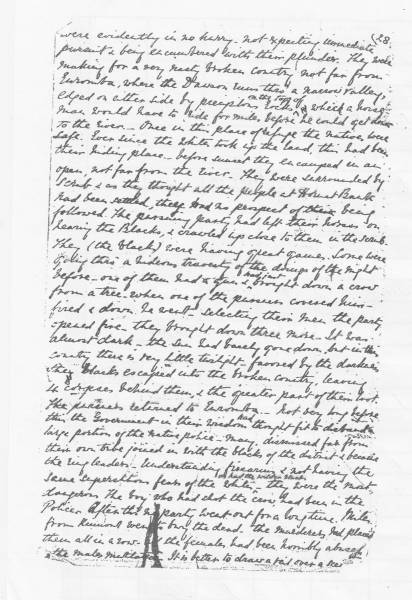 28
were evidently in no hurry. not expecting immediate
pursuit & being encumbered with their plunder. They were
making for a very nasty broken country not far from
Euromba, where the Dawson runs thro a narrow valley,
edged on either side by precipitous rocks on the top of which a horse
man would have to ride for miles before he could get down
to the river – Once in this place of refuge the natives were
safe. Ever since the whites took up the land, this had been
their hiding place – before sunset they encamped in an
open, not far from the river. They were surrounded by
scrub & as they thought all the people at Hornet Bank
had been settled, they had no prospect of their being
followed. The pursuing party had left their horses on
hearing the Blacks, & crawled up close to them in the scrub.
They (the blacks) were having great games. Some were
going thro a hideous travesty of the doings of the night
before – one of them had a gun & had just brought down a crow
from a tree – when one of the pursuers covered him –
fired & down he went – selecting their men the party
opened fire – they brought down three more – It was
almost dark – the sun had barely gone down, but in this
country there is very little twilight, favored by the darkness
the Blacks escaped into the broken country, leaving
4 corpses behind them, & the greater part of their loot.
The pursuers returned to Euromba – Not very long before
this the Government – in their wisdom had thought fit to disband a
large portion of the native police – many, dismissed far from
their own tribe joined in with the blacks of the district & became
the ringleaders – Understanding firearms & not having the
same superstitious fear of the whites, they were the most
dangerous. The boy who had shot the crow, had been in the
Police. After the party went out for a long time. Mile
from went to bury the dead. the murderers had placed
them all in a row – the females had been horribly abused
& the males mutilated. It is better to draw a veil over a